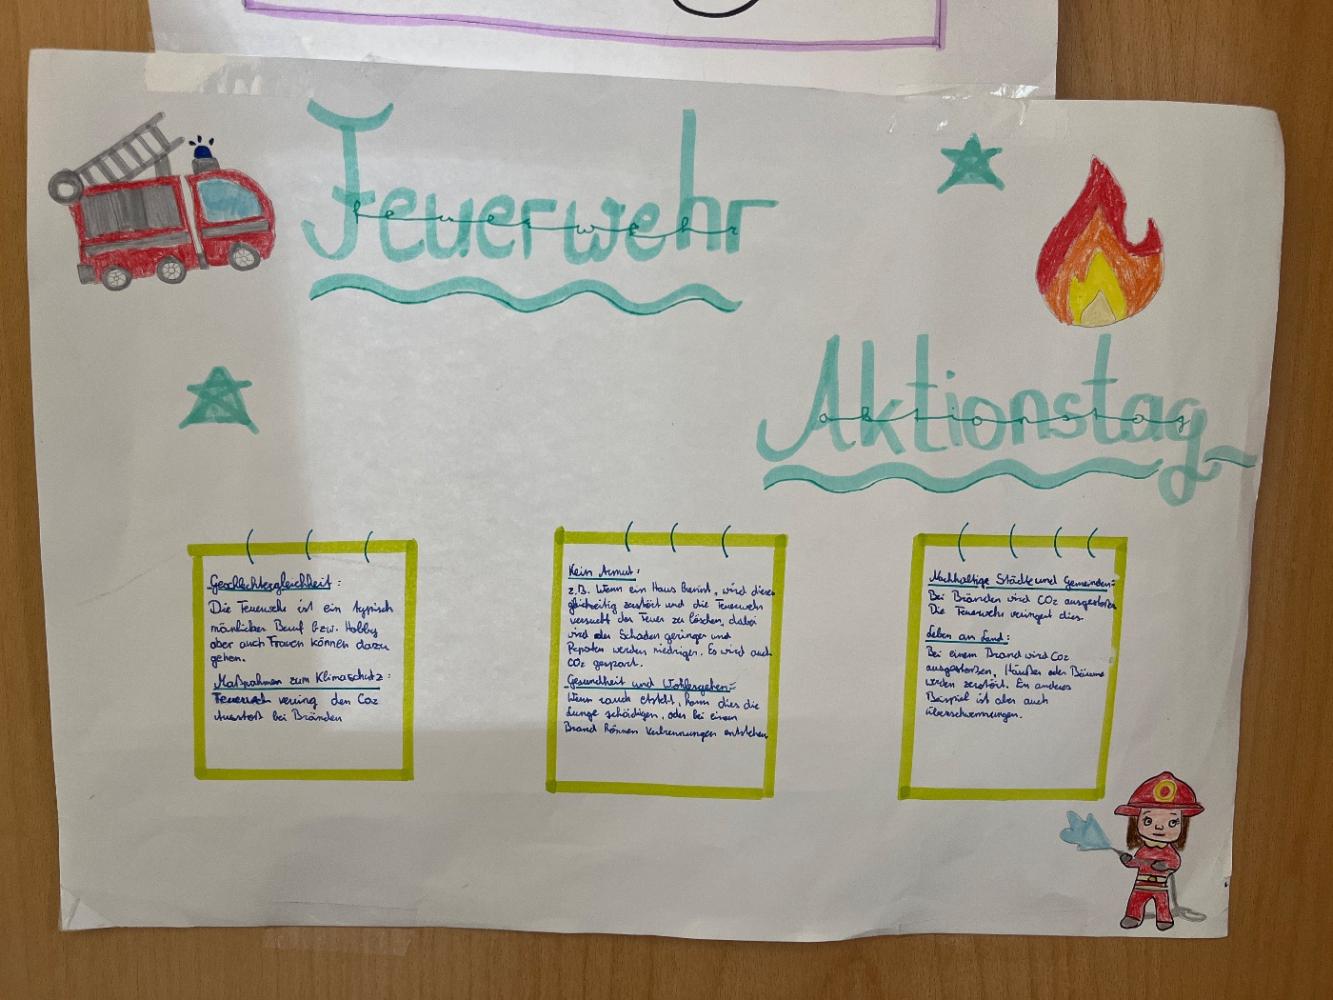 Feuerwehr
feuerwehr
Aktionstag
aktionstag
Geschlechtergleichheit:
Die Feuerwehr ist ein typisch
mänlicher Beruf bzw. Hobby
aber auch Frauen können dazu
gehen.
Maßnahmen zum Klimaschutz:
Feuerwehr vering den Co2
Ausstoß bei Bränden
Kein Armut:
z.B. Wenn ein Haus Brennt, wird dieses
gleichzeitig zerstört und die Feuerwehr
versucht das Feuer zu löschen, dabei
wird der Schaden geringer und
Kosten werden niedriger. Es wird auch
CO2 gespart.
Gesundheit und Wohlergehen:
Wenn rauch entsteht, kann dies die
Lunge schädigen, oder bei einem
Brand können Verbrennungen entstehen
Nachhaltige Städte und Gemeinden:
Bei Bränden wird CO2 ausgestoßen
Die Feuerwehr veringert dies.
Leben an Land:
Bei einem Brand wird CO2
ausgestoßen, Häußer oder Bäume
werden zerstört. Ein anderes
Beispiel ist aber auch
überschwemmungen.